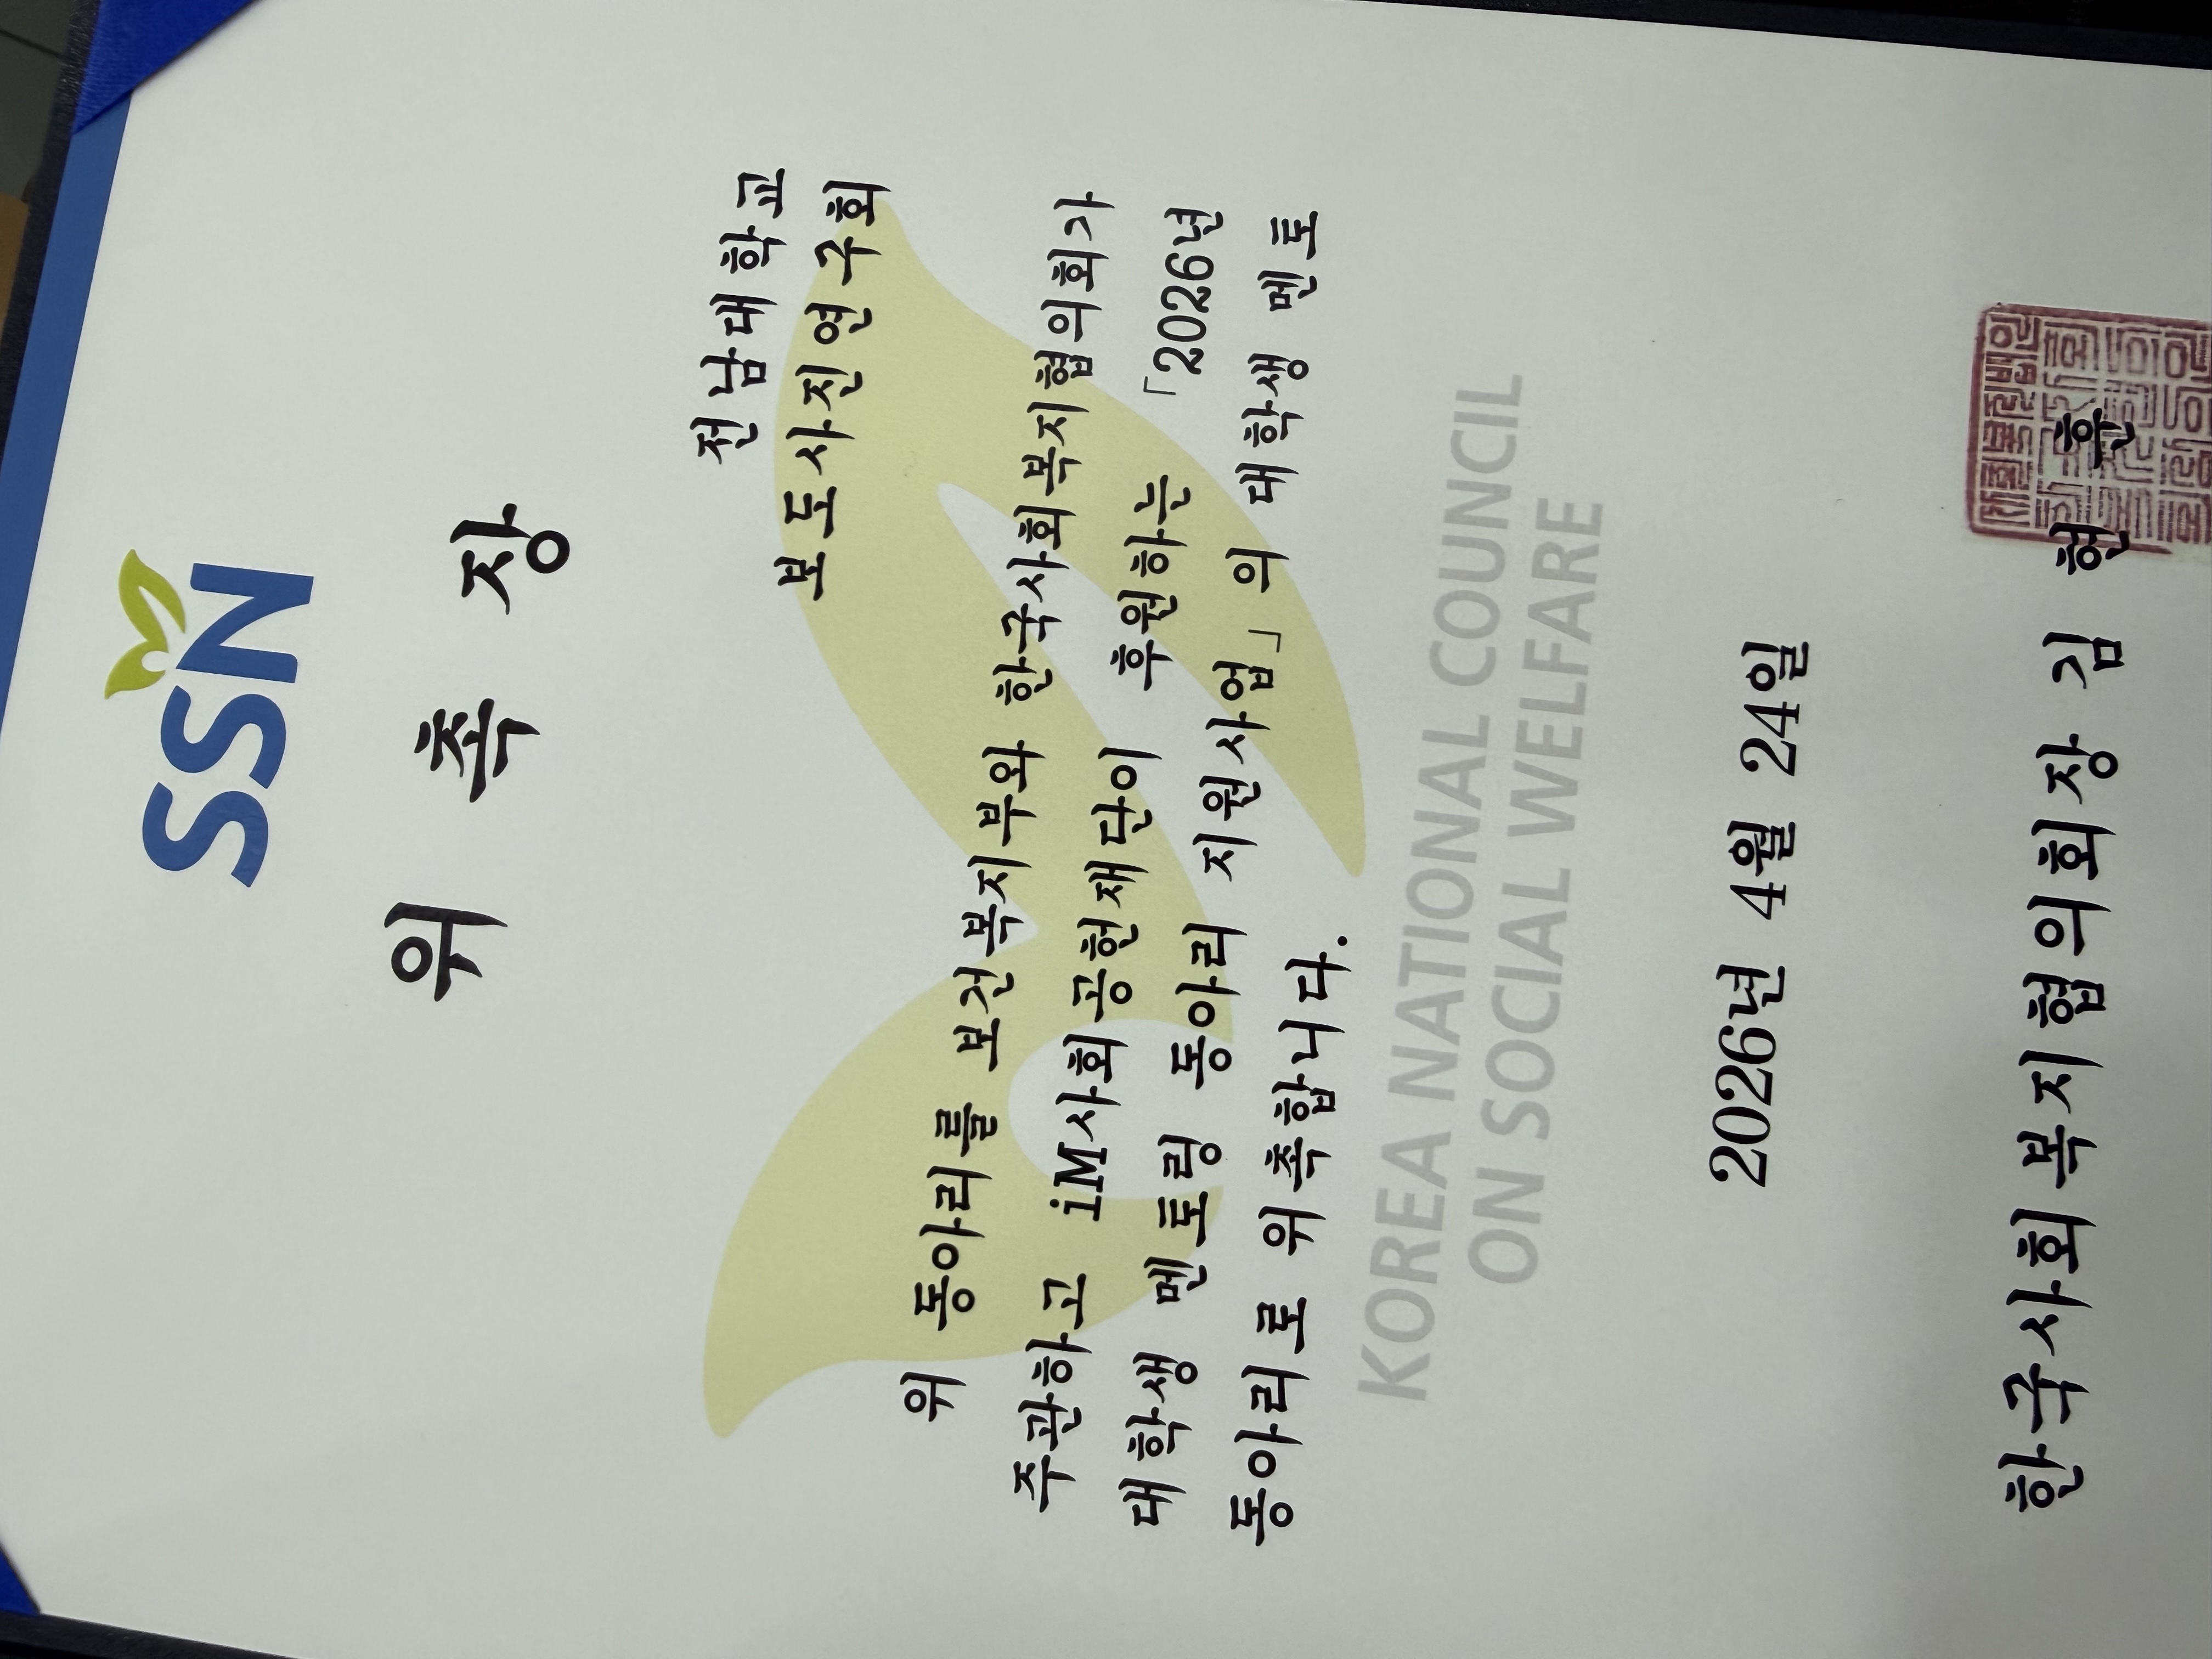 SSN
위 촉 장
전남대학교
보도사진연구회
위 동아리를 보건복지부와 한국사회복지협의회가
주관하고 iM사회공헌재단이 후원하는 「2026년
대학생 멘토링 동아리 지원사업」의 대학생 멘토
동아리로 위촉합니다.
KOREA NATIONAL COUNCIL
ON SOCIAL WELFARE
2026년 4월 24일
한국사회복지협의회장 김 현 훈